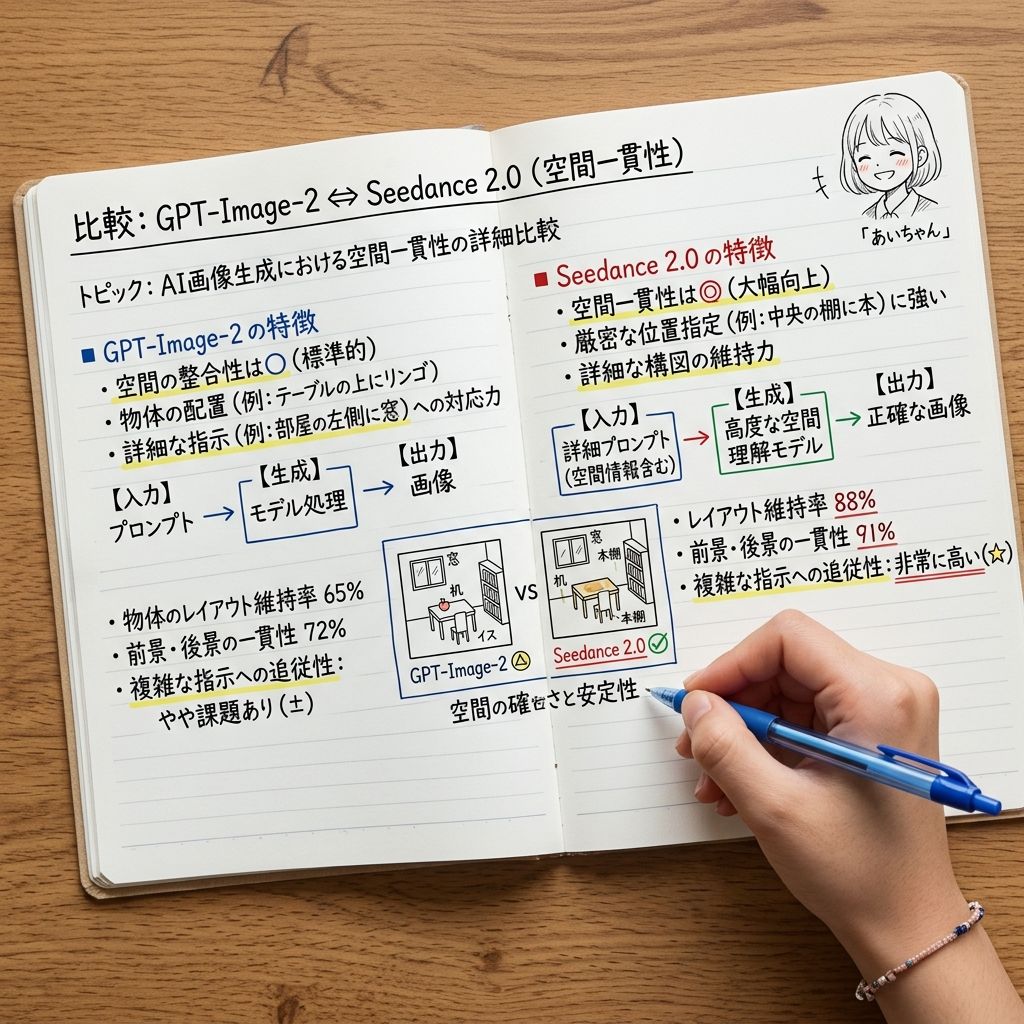 比較: GPT-Image-2 ⇔ Seedance 2.0 (空間一貫性)
トピック: AI画像生成における空間一貫性の詳細比較
■ GPT-Image-2 の特徴
・空間の整合性は○ (標準的)
・物体の配置 (例: テーブルの上にリンゴ)
・詳細な指示 (例: 部屋の左側に窓) への対応力
【入力】
プロンプト
→
【生成】
モデル処理
→
【出力】
画像
・物体のレイアウト維持率 65%
・前景・後景の一貫性 72%
・複雑な指示への追従性:
やや課題あり (±)
窓
机
イス
GPT-Image-2 △
VS
窓
本棚
机
本棚
Seedance 2.0 ✓
空間の確 さと安定性
「あいちゃん」
■ Seedance 2.0 の特徴
・空間一貫性は◎ (大幅向上)
・厳密な位置指定 (例: 中央の棚に本) に強い
・詳細な構図の維持力
【入力】
詳細プロンプト
(空間情報含む)
→
【生成】
高度な空間
理解モデル
→
【出力】
正確な画像
・レイアウト維持率 88%
・前景・後景の一貫性 91%
・複雑な指示への追従性: 非常に高い (☆)